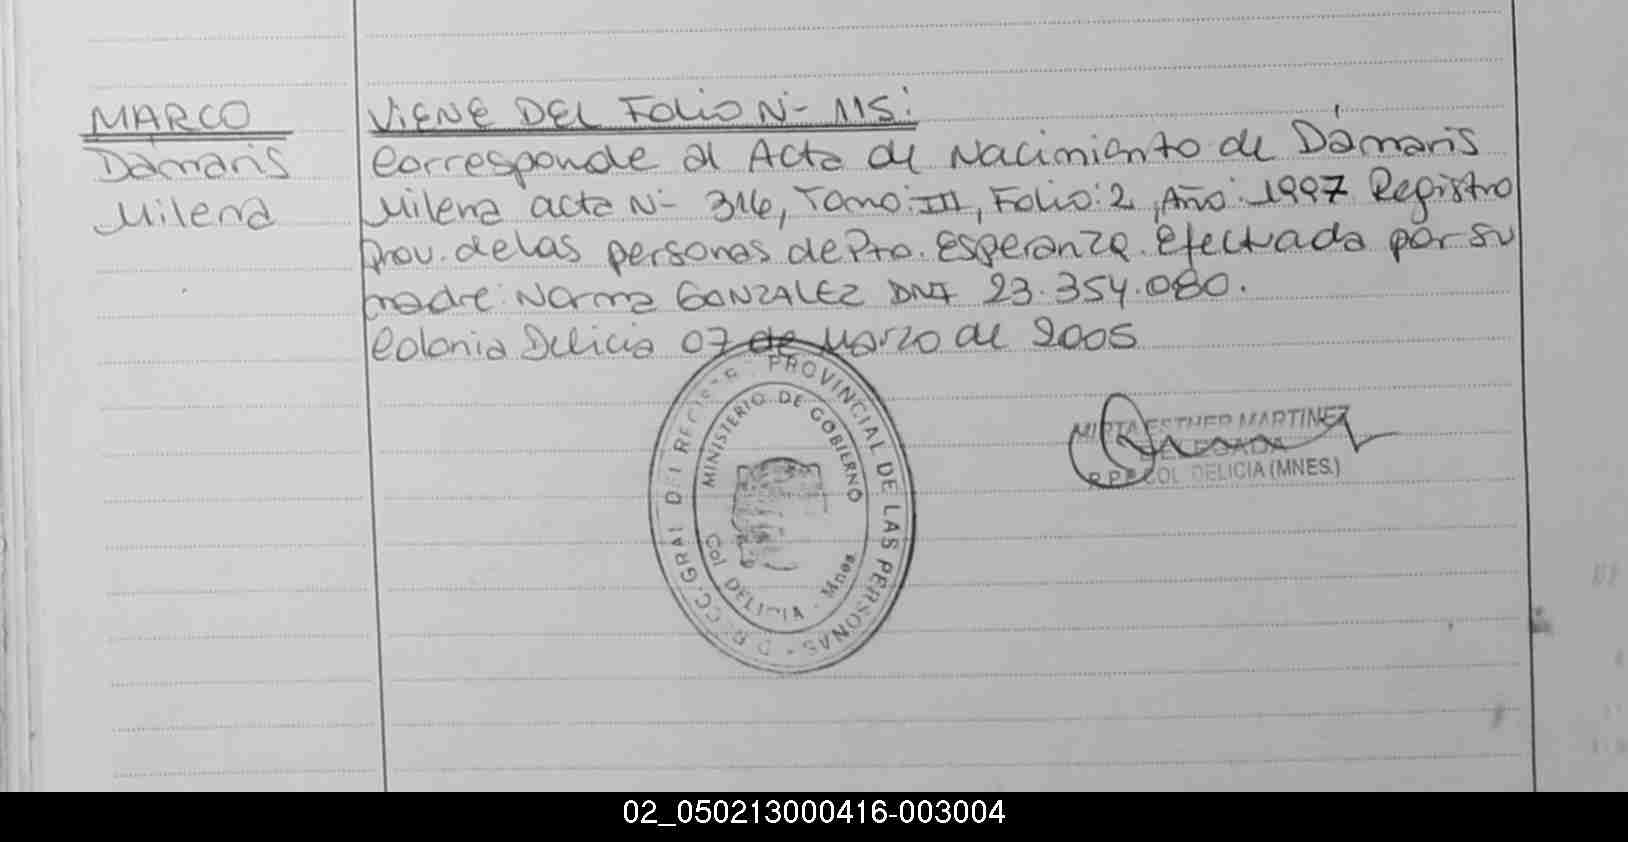 MARCO
Dámaris
Milena
VIENE DEL FOLIO N- 115:
Corresponde al Acta de Nacimiento de Dámaris
Milena acta N- 314, Tomo: III, Folio: 2, Año: 1997 Registro
Prov. de las personas de Pto. Esperanza. Efectuada por su
madre: Norma GONZALEZ DNI 23.354.080.
Colonia Delicia 07 de Marzo de 2005
PROVINCIAL DE LAS PERSONAS
MINISTERIO DE GOBIERNO
Col DELICIA - Mnes
MIRTA ESTHER MARTINEZ
COL DELICIA (MNES.)
02_050213000416-003004